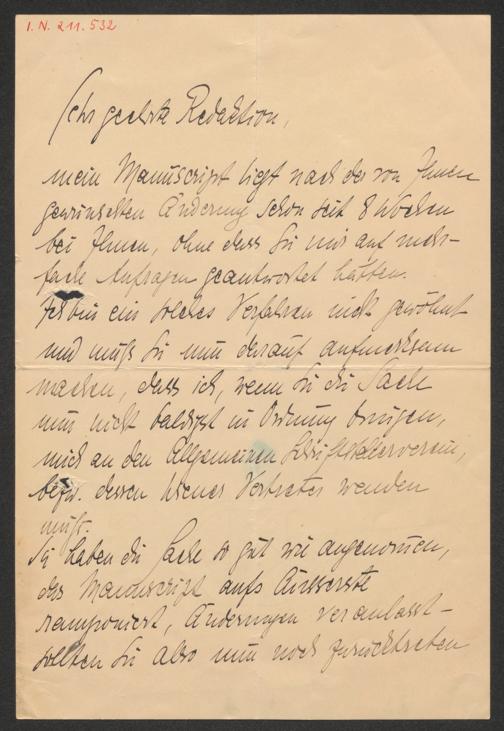 I. N. 211.532
Sehr geehrte Redaktion,
mein Manuscript liegt nach der von Ihnen
gewünschten Änderung schon seit 8 Wochen
bei Ihnen, ohne dass Sie mir auf mehr-
fache Anfragen geantwortet hätten.
Ich bin ein solches Verfahren nicht gewöhnt
und muß Sie nun darauf aufmerksam
machen, dass ich, wenn Sie die Sache
nun nicht baldigst in Ordnung bringen,
mich an den Allgemeinen Schriftstellerverein,
bezw. dessen Wiener Vertreter wenden
muß.
Sie haben die Sache so gut wie angenommen,
das Manuscript aufs Äusserste
ramponiert, Änderungen veranlasst –
sollten Sie also nun noch zurücktreten